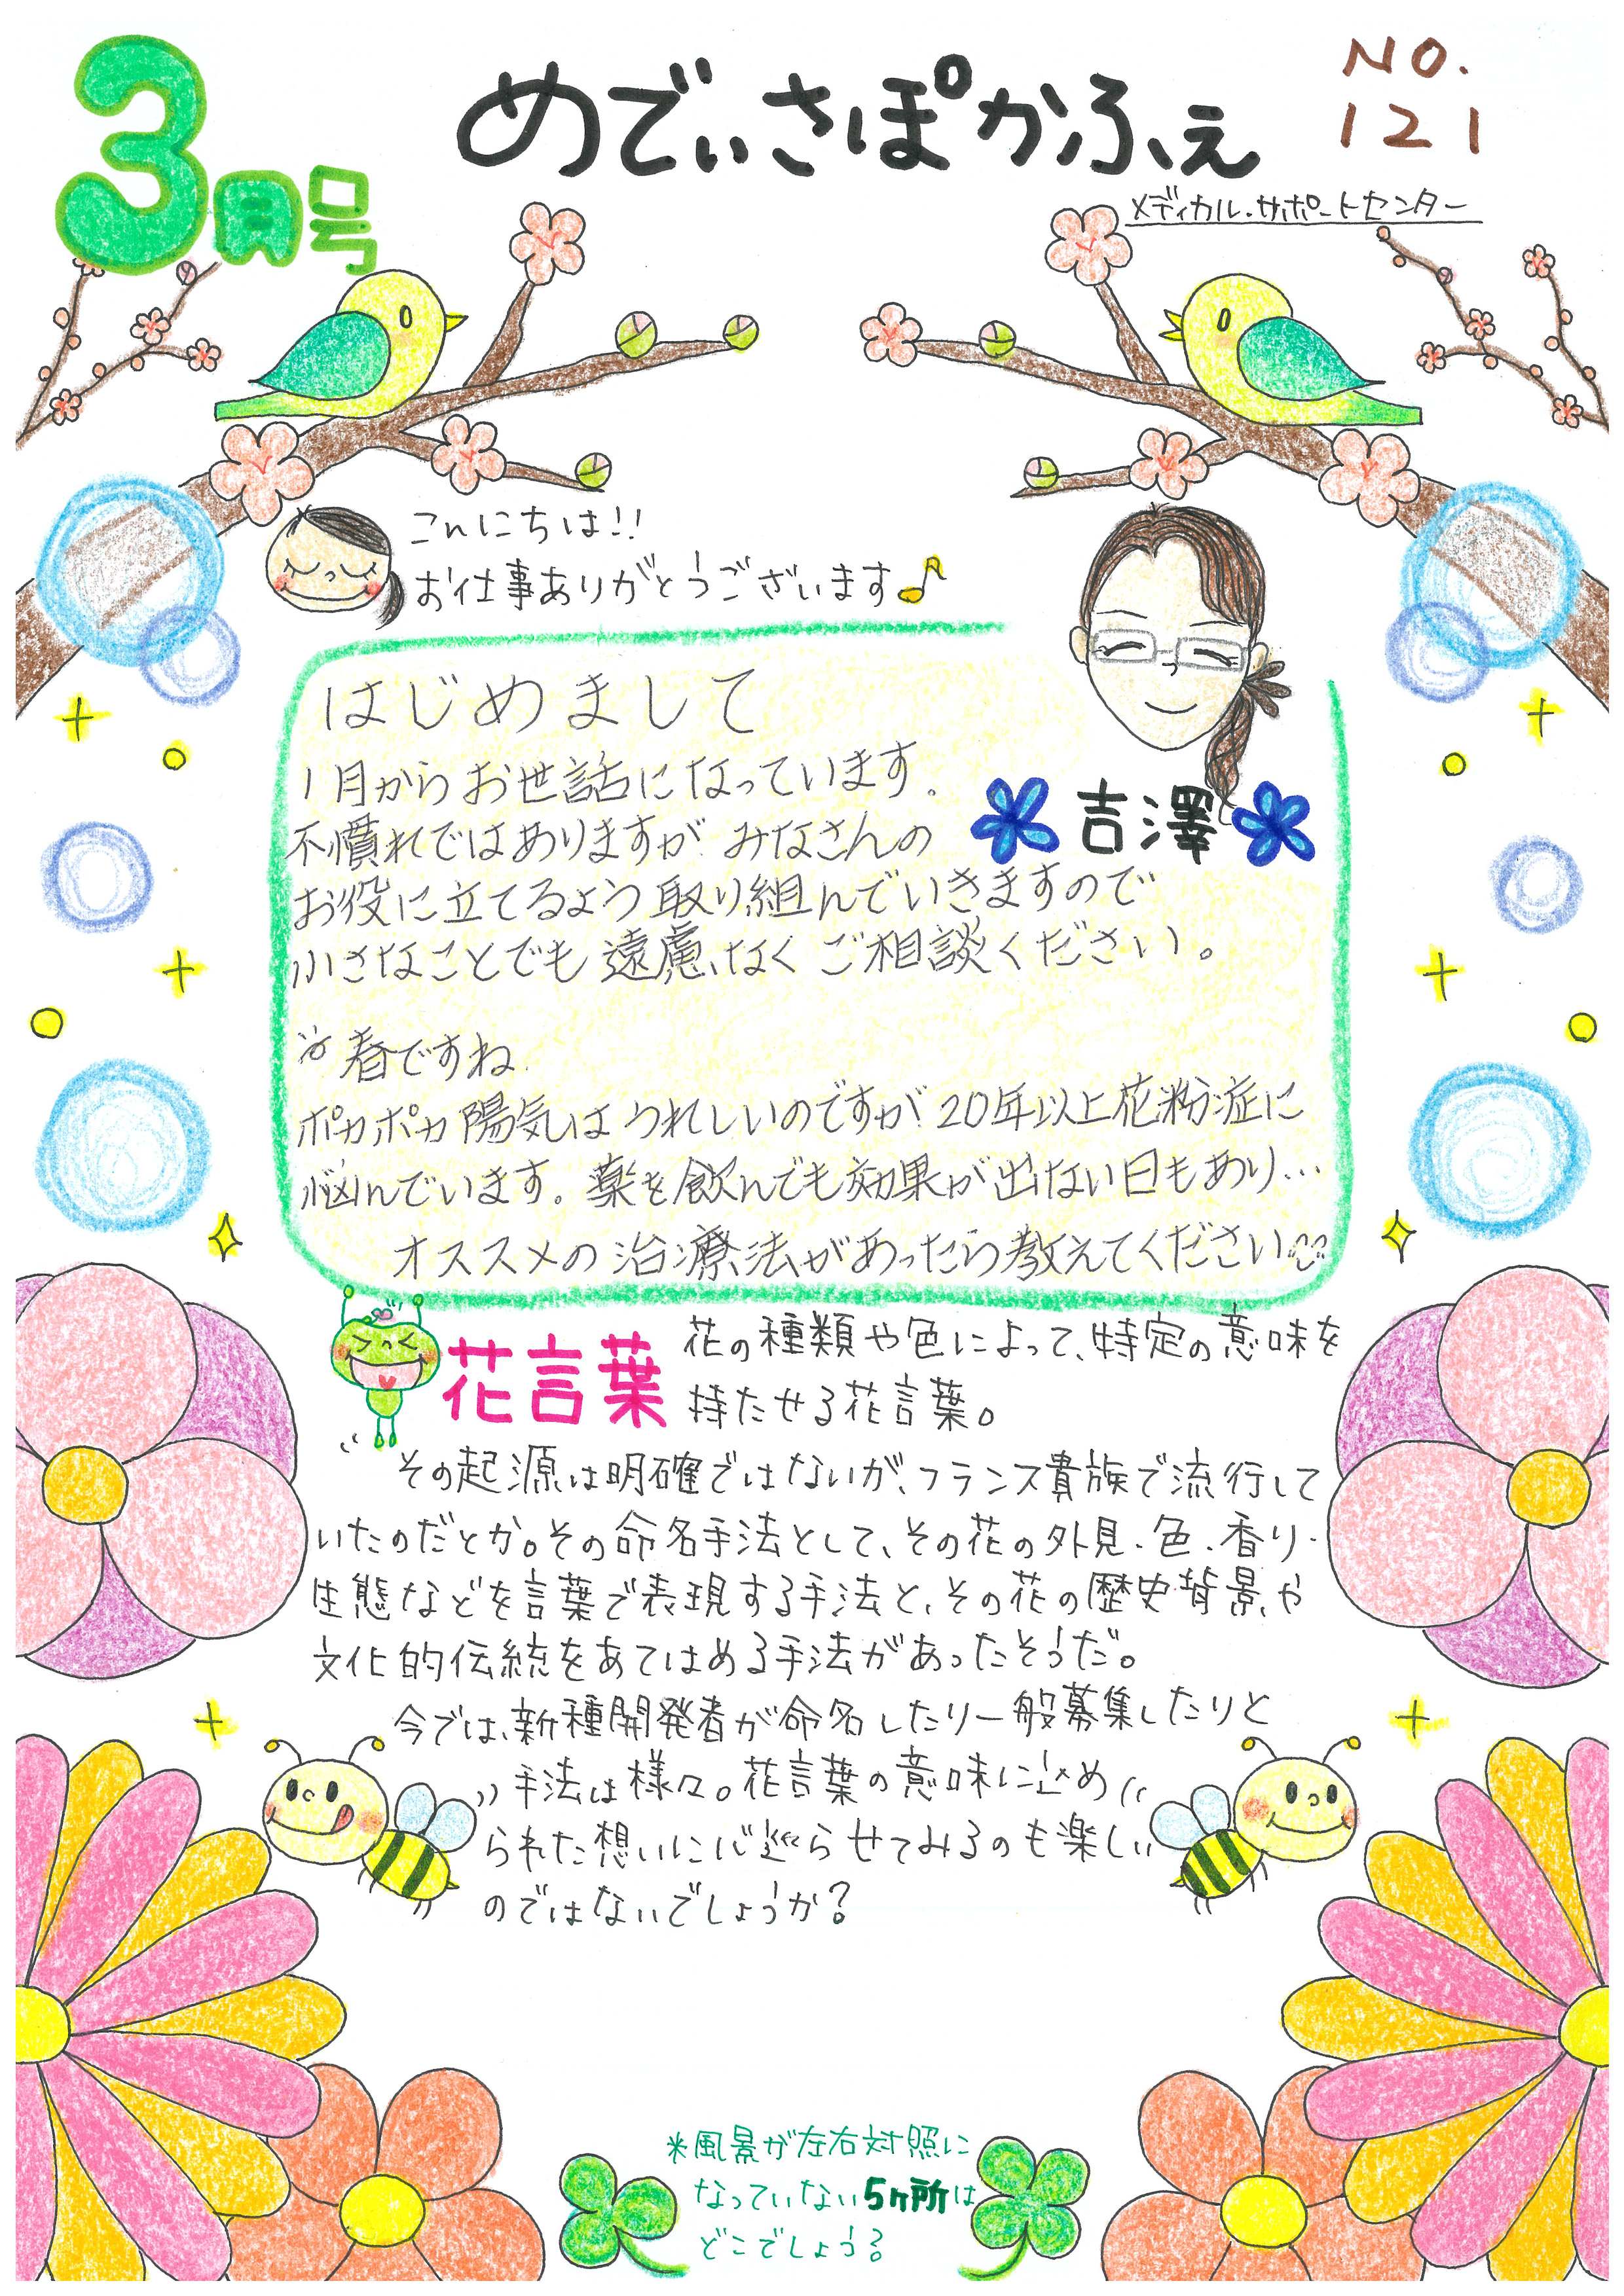 3月号
めでぃさぽかふぇ
NO.
121
メディカル・サポートセンター
こんにちは!!
お仕事ありがとうございます♪
はじめまして
1月からお世話になっています。
不慣れではありますが みなさんの
お役に立てるよう取り組んでいきますので
小さなことでも遠慮なくご相談ください。
吉澤
春ですね
ポカポカ陽気はうれしいのですが 20年以上花粉症に
悩んでいます。薬を飲んでも効果が出ない日もあり…
オススメの治療法があったら教えてください
花言葉
花の種類や色によって、特定の意味を
持たせる花言葉。
その起源は明確ではないが、フランス貴族で流行して
いたのだとか。その命名手法として、その花の外見・色・香り・
生態などを言葉で表現する手法と、その花の歴史背景や
文化的伝統をあてはめる手法があったそうだ。
今では、新種開発者が命名したり一般募集したりと
手法は様々。花言葉の意味に込め
られた想いに心巡らせてみるのも楽しい
のではないでしょうか?
*風景が左右対照に
なっていない5ヶ所は
どこでしょう?